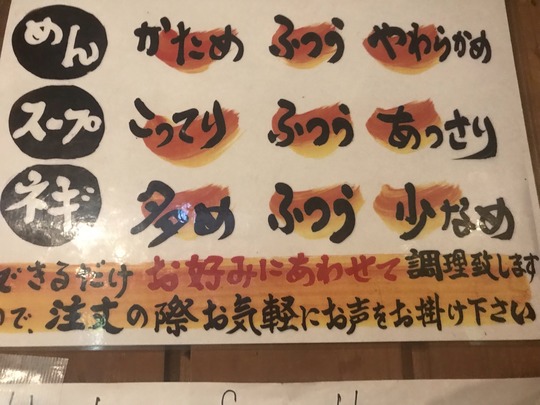 めん かため ふつう やわらかめ
スープ こってり ふつう あっさり
ネギ 多め ふつう 少なめ
できるだけ お好みにあわせて 調理致します
で、注文の際お気軽にお声をお掛け下さい